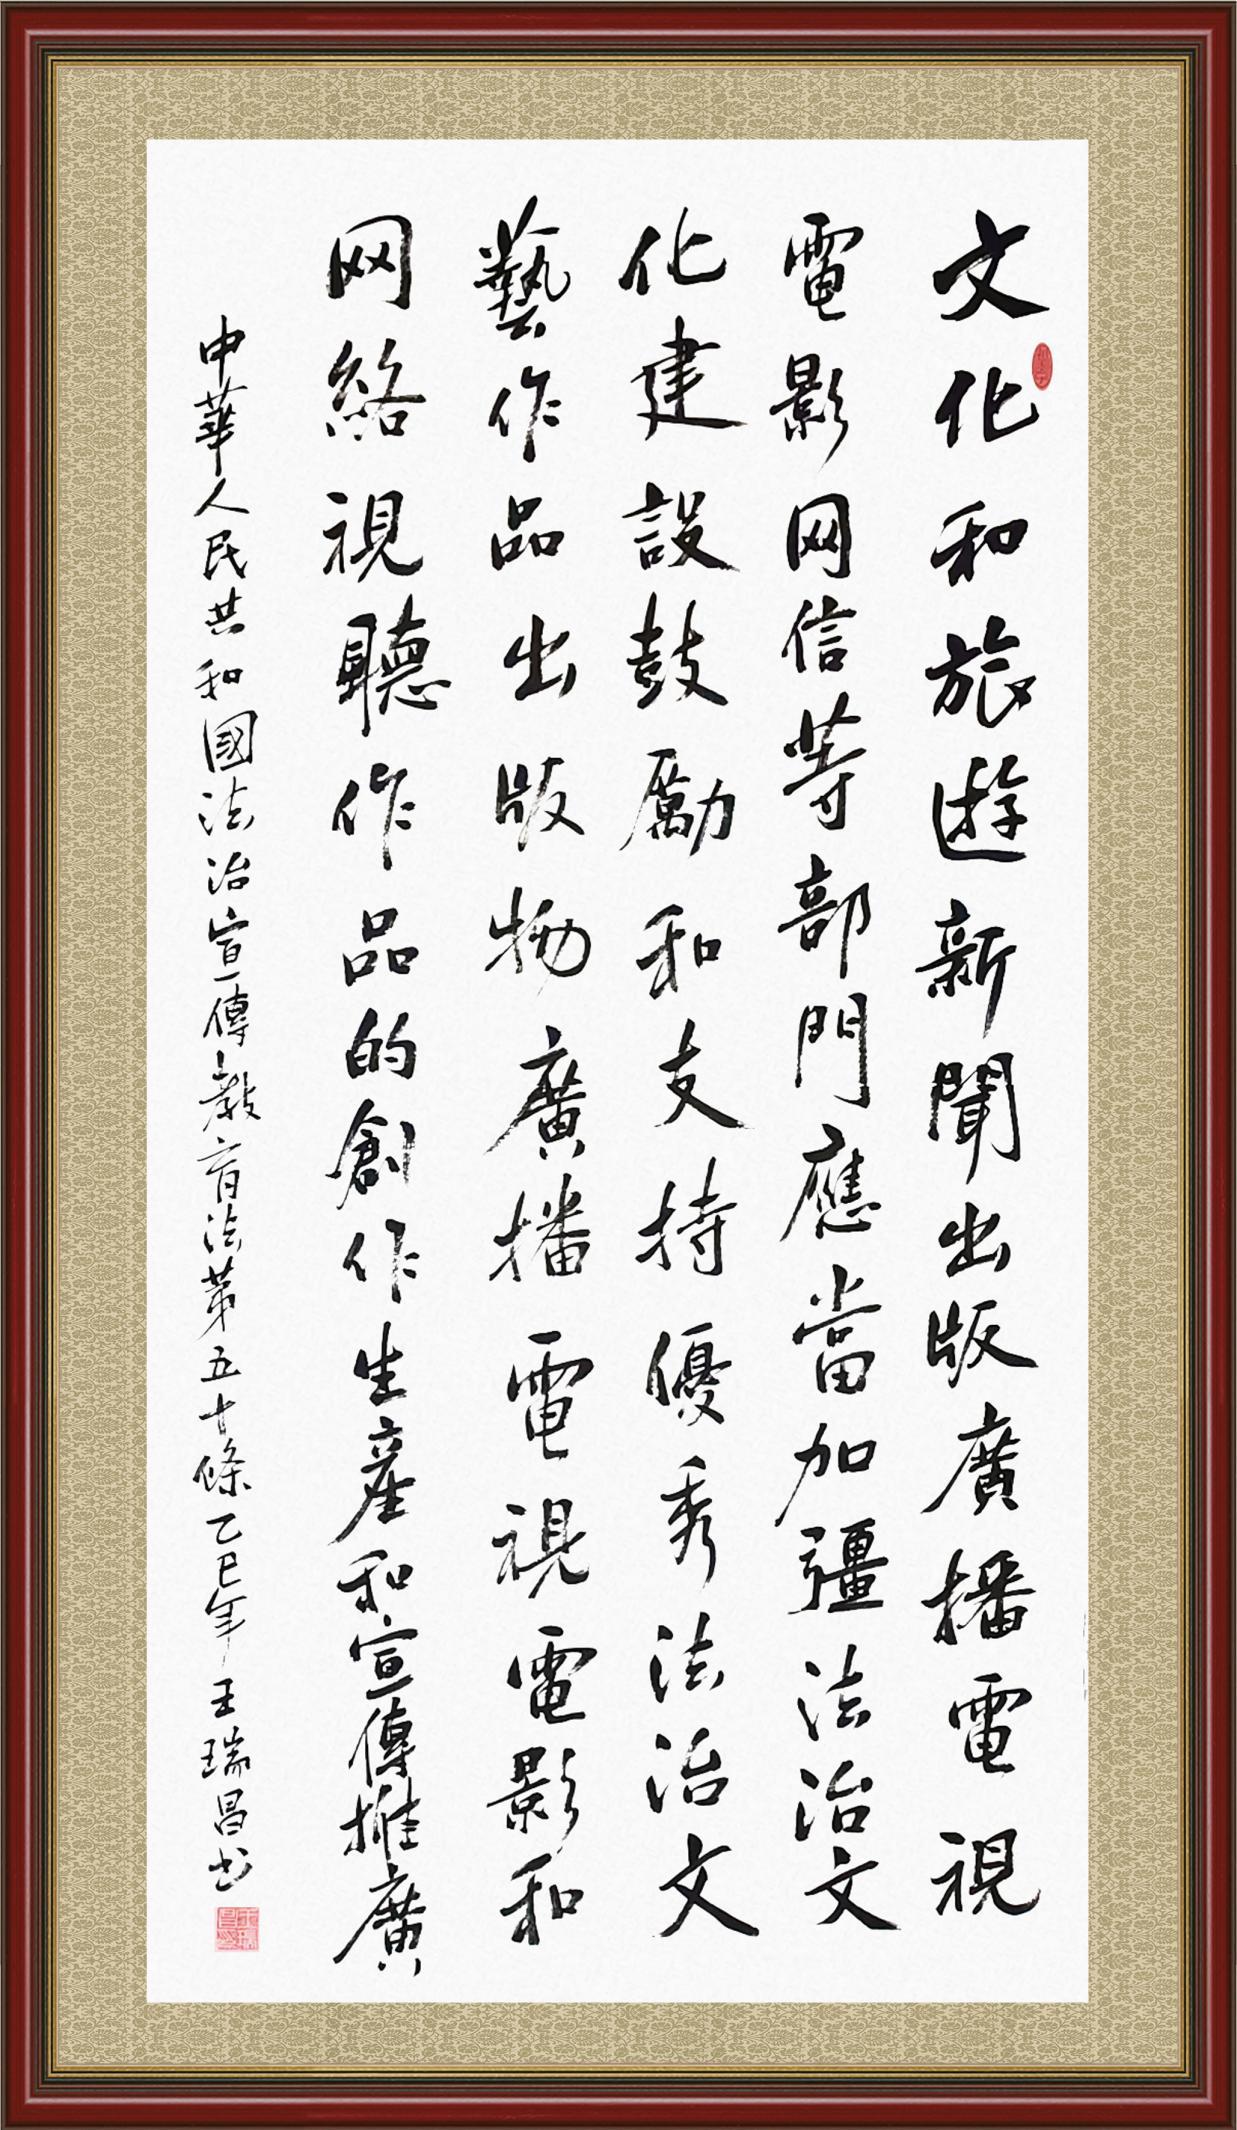 文化和旅遊新聞出版廣播電視
電影网信等部門應當加彊法治文
化建設鼓勵和支持優秀法治文
藝作品出版物廣播電視電影和
网絡視聽作品的創作生産和宣傳推廣
中華人民共和國法治宣傳教育法第五十條乙巳年王瑞昌书